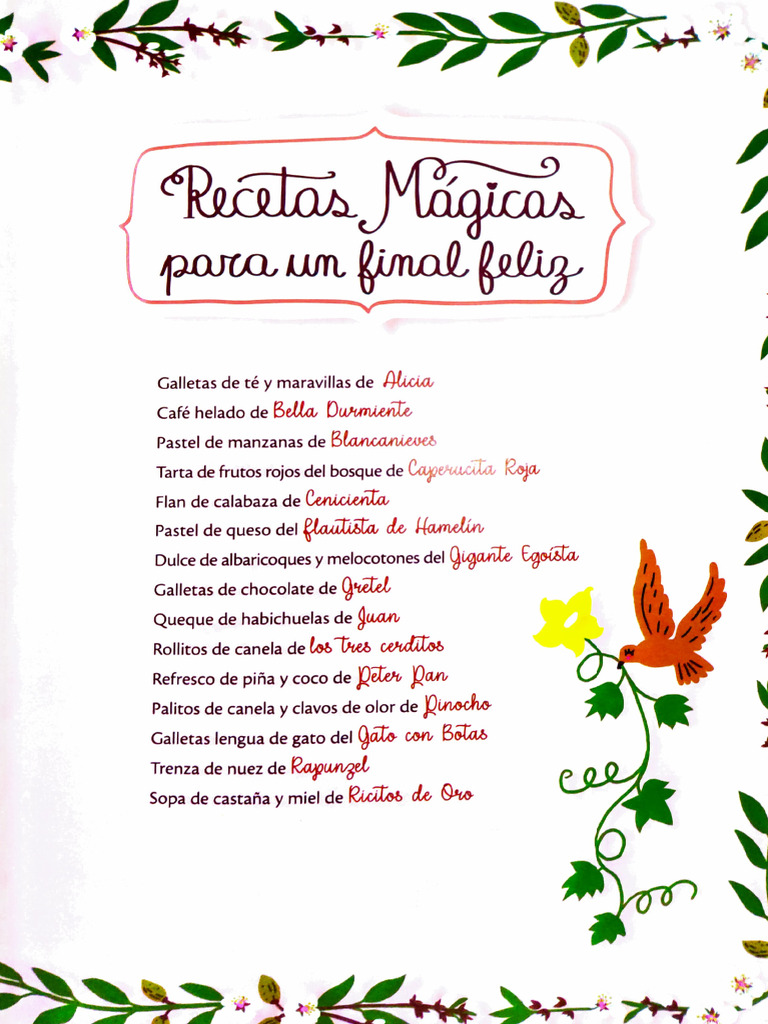 Recetas Mágicas
para un final feliz
Galletas de té y maravillas de Alicia
Café helado de Bella Durmiente
Pastel de manzanas de Blancanieves
Tarta de frutos rojos del bosque de Caperucita Roja
Flan de calabaza de Cenicienta
Pastel de queso del flautista de Hamelín
Dulce de albaricoques y melocotones del Gigante Egoísta
Galletas de chocolate de Gretel
Queque de habichuelas de Juan
Rollitos de canela de los tres cerditos
Refresco de piña y coco de Peter Pan
Palitos de canela y clavos de olor de Pinocho
Galletas lengua de gato del Gato con Botas
Trenza de nuez de Rapunzel
Sopa de castaña y miel de Ricitos de Oro